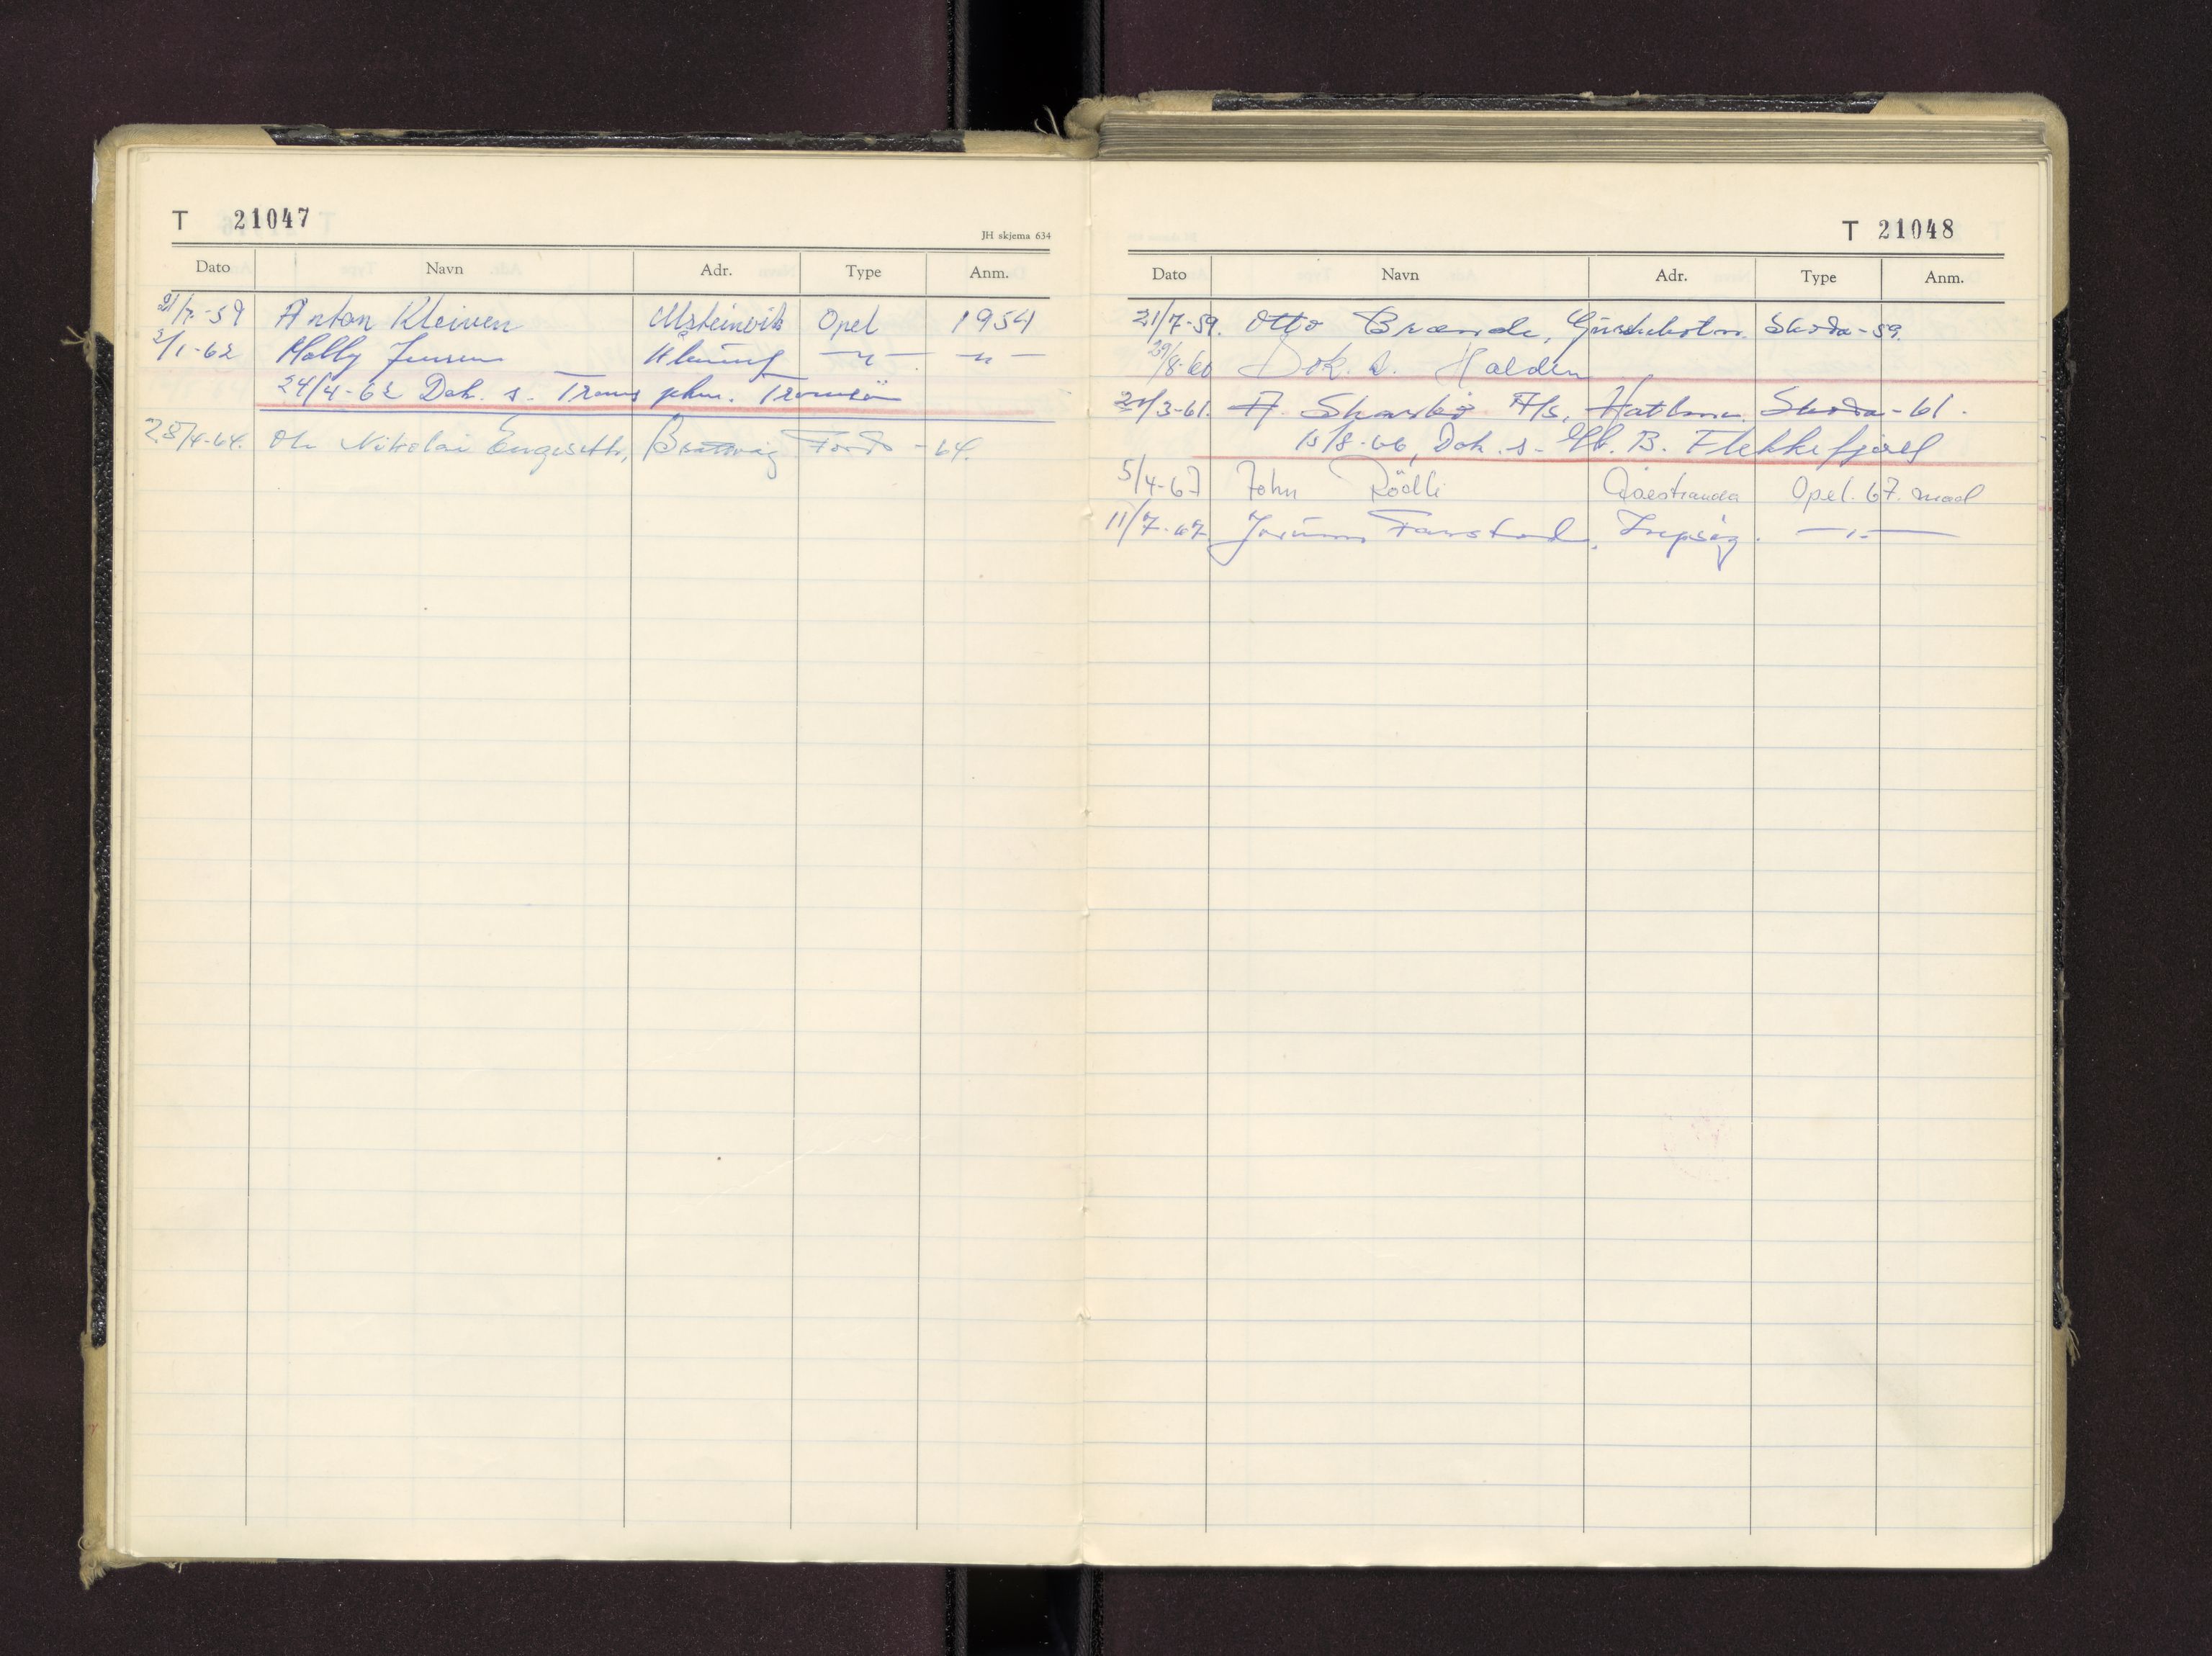 T 21047
JH skjema 634
Dato Navn Adr. Type Anm.
21/7-59 Anton Kleiven Ulsteinvik Opel 1954
2/1-62 Molly Jensen Ålesund —"— —"—
24/4-62 Dok. s. Troms phm. Tromsö
28/4-64. Ole Nikolai Engeseth, Brattvåg Ford -64.
T 21048
Dato Navn Adr. Type Anm.
21/7-59. Otto Brænde, Gurskebotn. Skoda-59.
29/8-60 Dok. s. Halden
21/3-61. A. Skarsbö A/S, Skoda-61.
15/8-66, Dok. s. B. Flekkefjord
5/4-67 John Rödli Opel. 67. mod
11/7-67 Jorunn Farstad, —"—